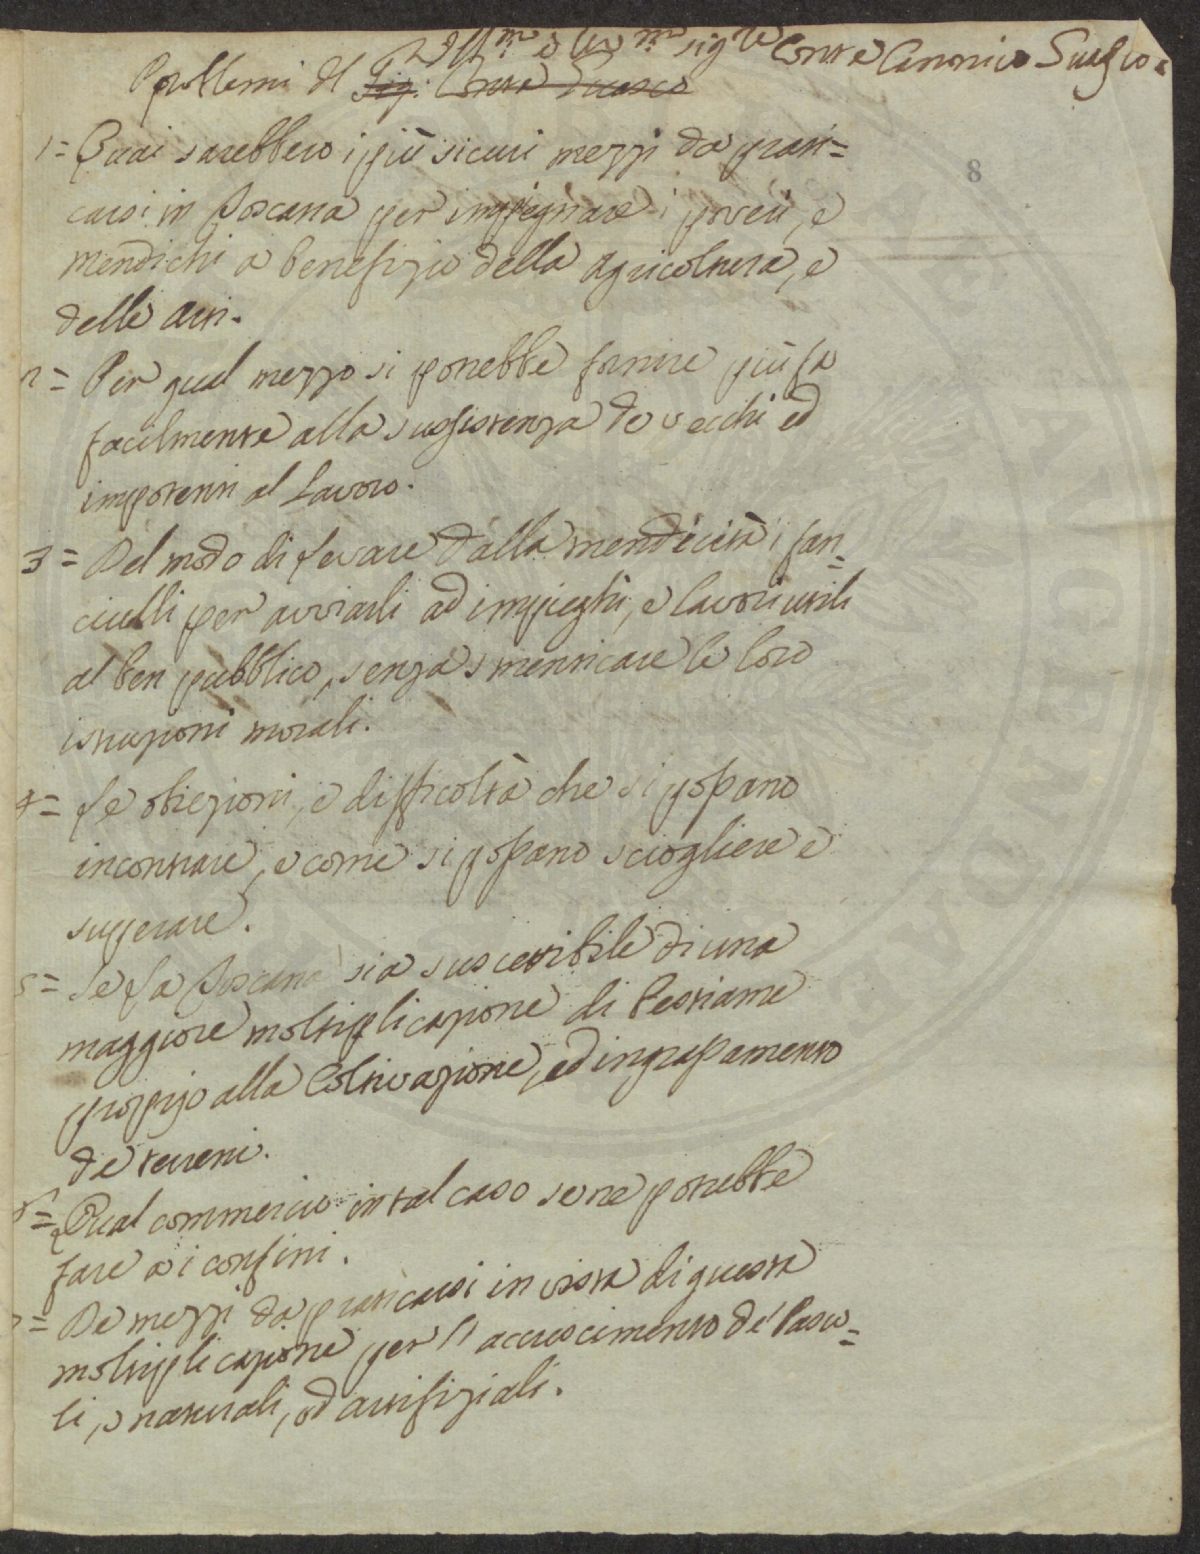 Ill.mo e Rev.mo Sig.re Conte Canonico
Problemi del Sig. Conte
8
1= Quai sarebbero i più sicuri mezzi da prati=
carsi in Toscana per impiegnare i poveri, e
mendichi a benefizio della Agricoltura, e
delle Arti.
2= Per qual mezzo si potrebbe fornire più fa
facilmente alla sussistenza de vecchi ed
impotenti al Lavoro.
3= Del modo di levare dalla mendicità i fan=
ciulli per avviarli ad impieghi, e lavori utili
al ben pubblico, senza smenticare le loro
istruzioni morali.
4= Le obiezioni, e difficoltà che si possano
incontrare, e come si possano sciogliere e
superare.
5= Se la Toscana sia suscettibile di una
maggiore moltiplicazione di bestiame
proprio alla Coltivazione, ed ingrassamento
de terreni.
6= Qual commercio in tal caso se ne potrebbe
fare a i confini.
7= De mezzi da praticarsi in vista di questa
moltiplicazione per l'accrescimento de' Pasco=
li, e naturali, ed artifiziali.